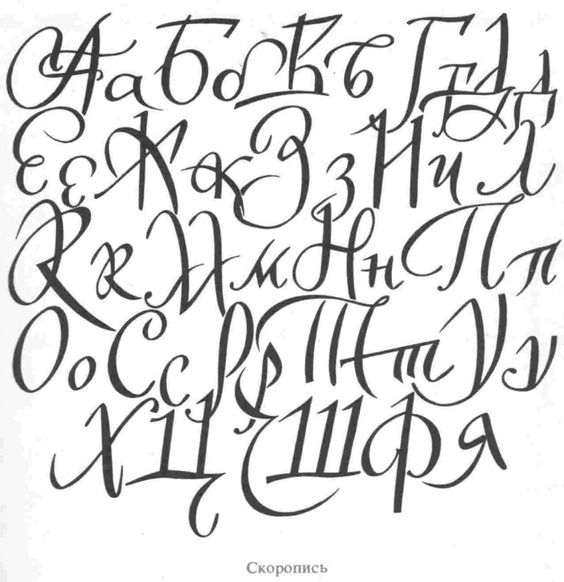 А а Б б В в Г г Д д
Е е Ж ж З з И и л
К к М м Н н П п
О о С с Р р Т т У у
Х Ц Ш Ф я
Скоропись